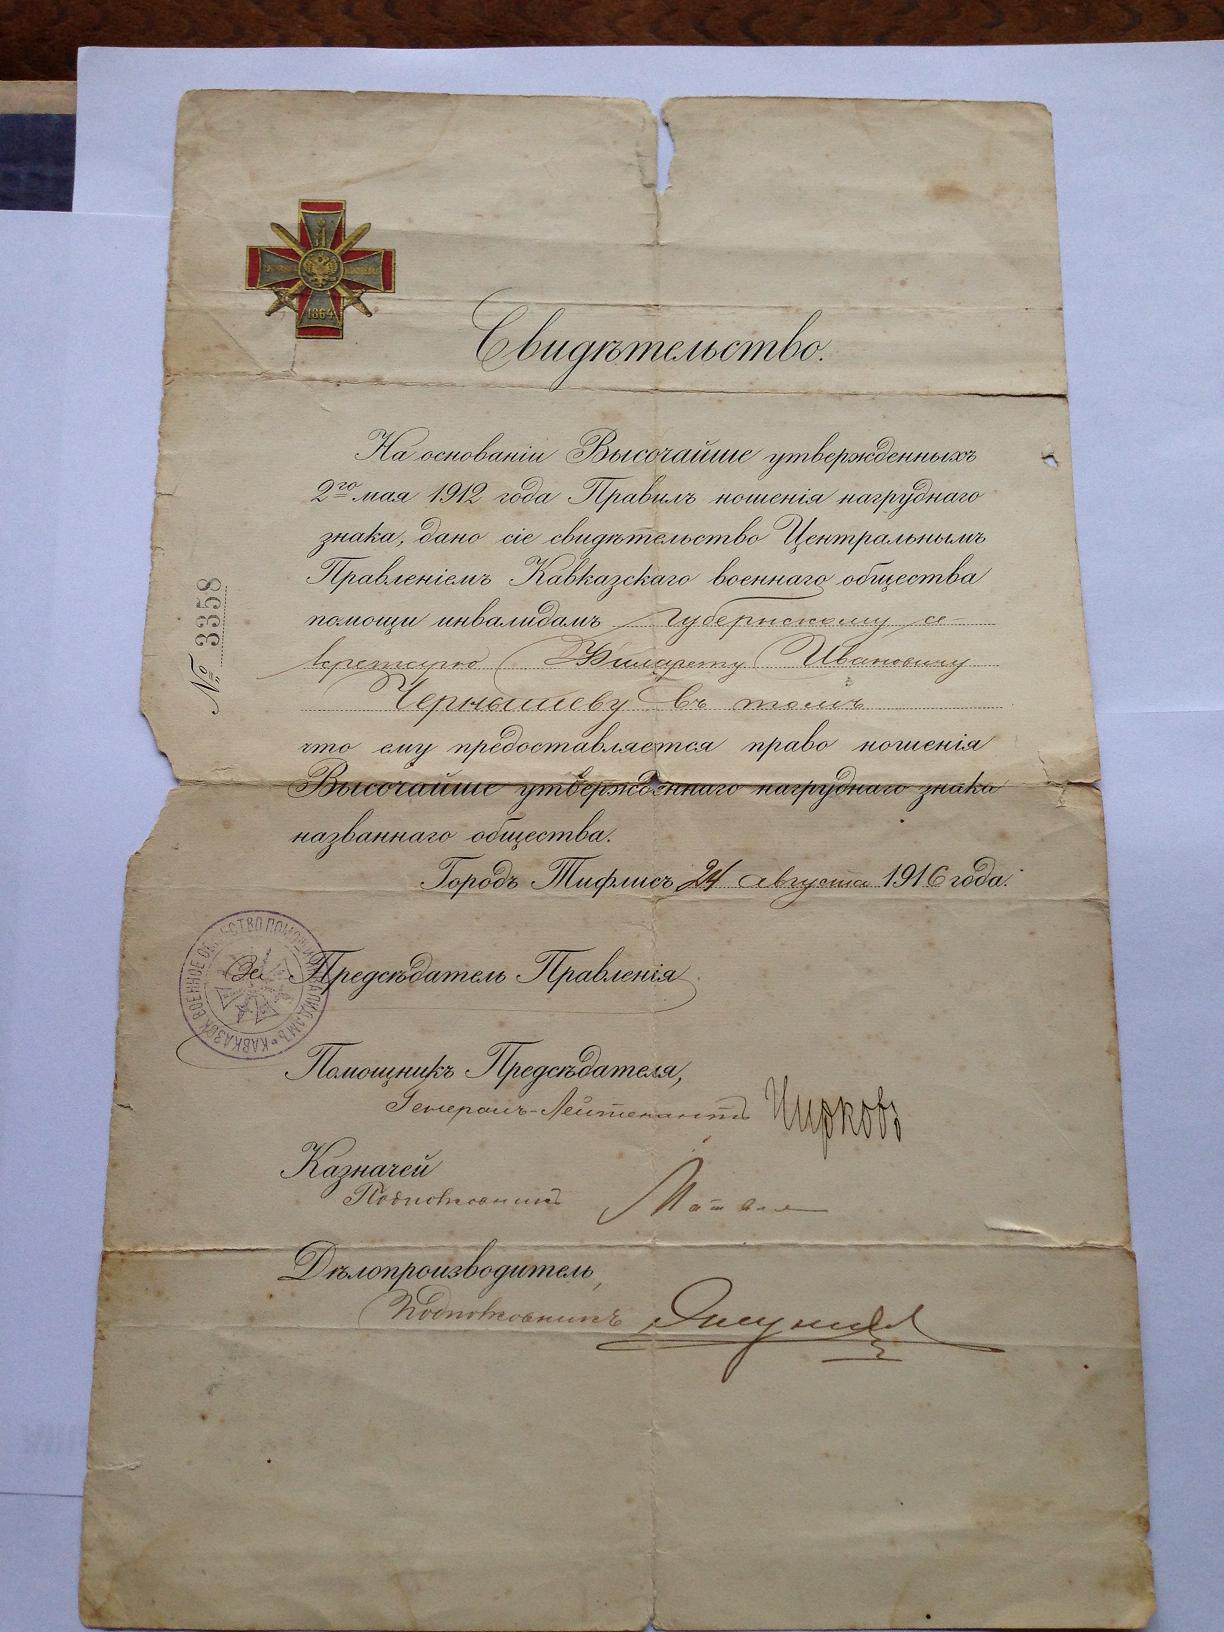 1864
Свидѣтельство.
На основаніи Высочайше утвержденныхъ
2го мая 1912 года Правилъ ношенія нагруднаго
знака, дано сіе свидѣтельство Центральнымъ
Правленіемъ Кавказскаго военнаго общества
помощи инвалидамъ губернскому се-
кретарю Филарету Ивановичу
Чернышеву въ томъ
что ему предоставляется право ношенія
Высочайше утвержденнаго нагруднаго знака
названнаго общества.
Городъ Тифлисъ 24 августа 1916 года.
№ 3358
КАВКАЗСК. ВОЕННОЕ ОБЩЕСТВО ПОМОЩИ ИНВАЛИДАМЪ
За Предсѣдатель Правленія
Помощникъ Предсѣдателя,
Генералъ-Лейтенантъ Чирковъ
Казначей
Подполковникъ
Дѣлопроизводитель,
Подполковникъ